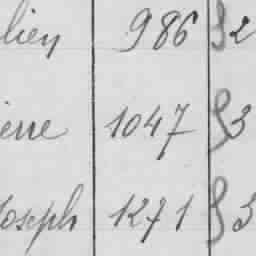 lien 986 §2
erre 1047 §3
Joseph 1271 §3